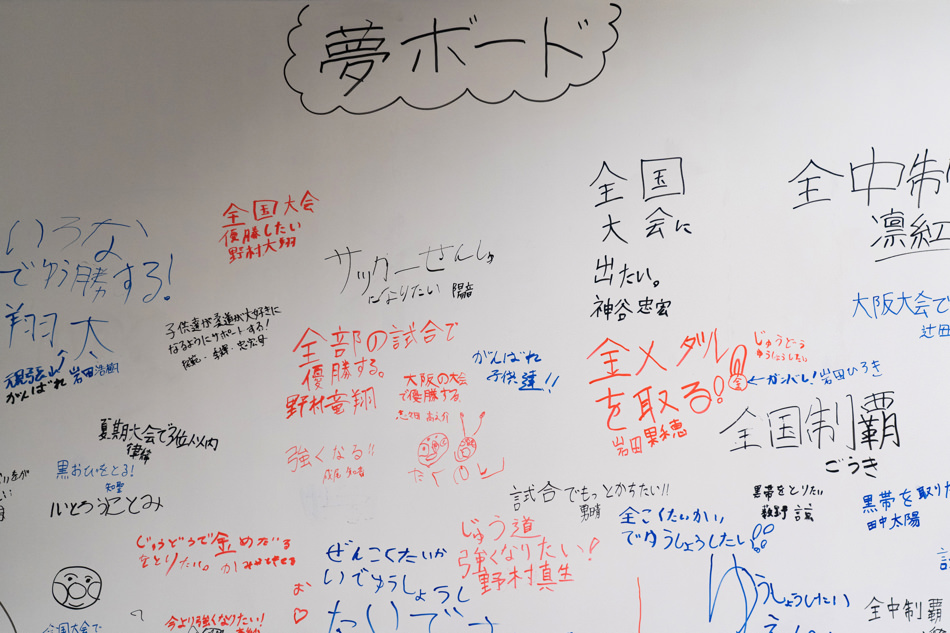 夢ボード
いろな
でゆう勝する!
翔大
がんばれ 岩田浩明
全国大会
優勝したい
野村大翔
子供達が柔道が大好きに
なるようにサポートする!
サッカーせんしゅ
になりたい 陽音
全部の試合で
優勝する。
野村竜翔
大阪の大会
で優勝する
がんばれ
子供達!!
強くなる!!
全国
大会に
出たい。
神谷忠宏
全中制
凛紅
大阪大会で
辻田
金メダル
を取る!
岩田
じゅうどう
ゆうしょうしたい
金
←ガンバレ!岩田ひろき
全国制覇
ごうき
夏期大会で3位入以内
黒おびをとる!
知聖
いとうことみ
試合でもっとかちたい!!
男晴
黒帯をとりたい
諒
黒帯を取りた
田中太陽
じゅうどうで金めだる
をとりたい。
じゅう道
強くなりたい!
野村真生
全こくたいかい
でゆうしょうしたい
ぜんこくたいか
いでゆうしょうし
たいです
ゆうしょうしたい
今より強くなりたい!
全国大会で
全中制覇